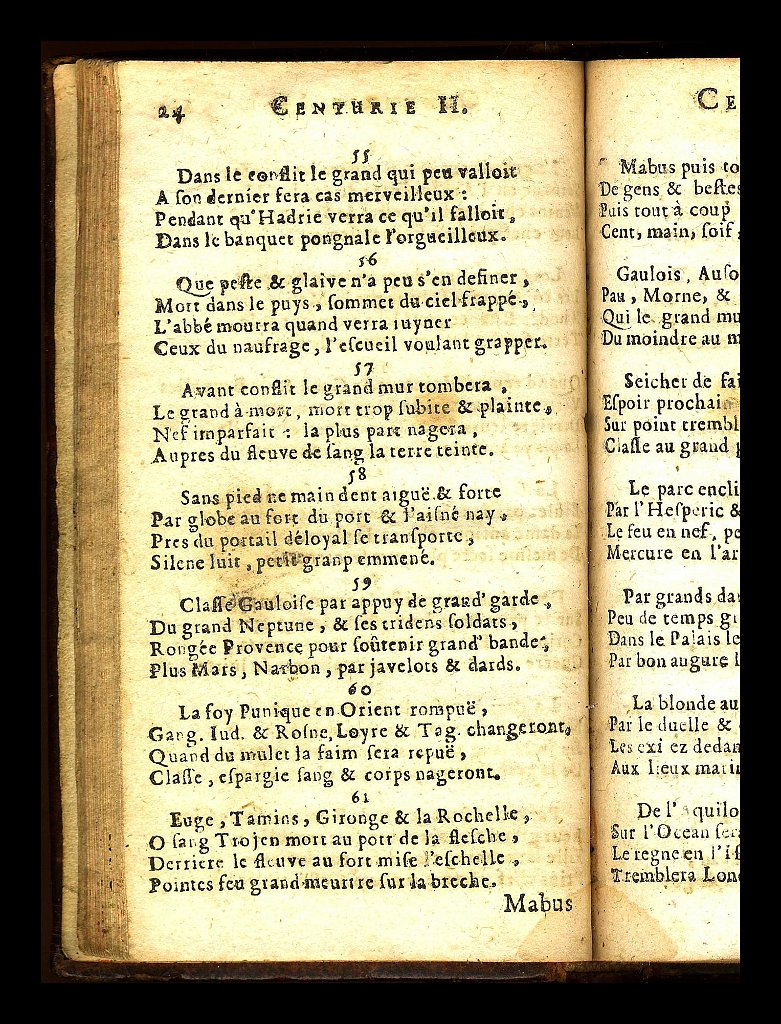 24 CENTURIE II.
55
Dans le conflit le grand qui peu valloit
A ſon dernier fera cas merveilleux :
Pendant qu'Hadrie verra ce qu'il falloit,
Dans le banquet pongnale l'orgueilleux.
56
Que peſte & glaive n'a peu s'en definer,
Mort dans le puys, ſommet du ciel frappé,
L'abbé mourra quand verra ruyner
Ceux du naufrage, l'eſcueil voulant grapper.
57
Avant conflit le grand mur tombera,
Le grand à mort, mort trop ſubite & plainte,
Nef imparfait : la plus part nagera,
Aupres du fleuve de ſang la terre teinte.
58
Sans pied ne main dent aiguë & forte
Par globe au fort du port & l'aiſné nay,
Pres du portail déloyal ſe tranſporte,
Silene luit, petit granp emmené.
59
Claſſe Gauloiſe par appuy de grand' garde,
Du grand Neptune, & ſes tridens ſoldats,
Rongée Provence pour ſoûtenir grand' bande,
Plus Mars, Narbon, par javelots & dards.
60
La foy Punique en Orient rompuë,
Gang. Iud. & Roſne, Loyre & Tag. changeront,
Quand du mulet la faim ſera repuë,
Claſſe, eſpargie ſang & corps nageront.
61
Euge, Tamins, Gironge & la Rochelle,
O ſang Trojen mort au port de la fleſche,
Derriere le fleuve au fort miſe l'eſchelle,
Pointes feu grand meurtre ſur la breche.
Mabus
CE
Mabus puis to
De gens & beſtes
Puis tout à coup
Cent, main, ſoif,
Gaulois, Auſo
Pau, Morne, &
Qui le grand mu
Du moindre au m
Seicher de fai
Eſpoir prochain
Sur point trembl
Claſſe au grand
Le parc encli
Par l'Heſperic &
Le feu en nef, pe
Mercure en l'ar
Par grands da
Peu de temps gr
Dans le Palais le
Par bon augure l
La blonde au
Par le duelle &
Les exi ez dedan
Aux lieux marin
De l' quilo
Sur l'Ocean ſer
Le regne en l'Iſ
Tremblera Lon